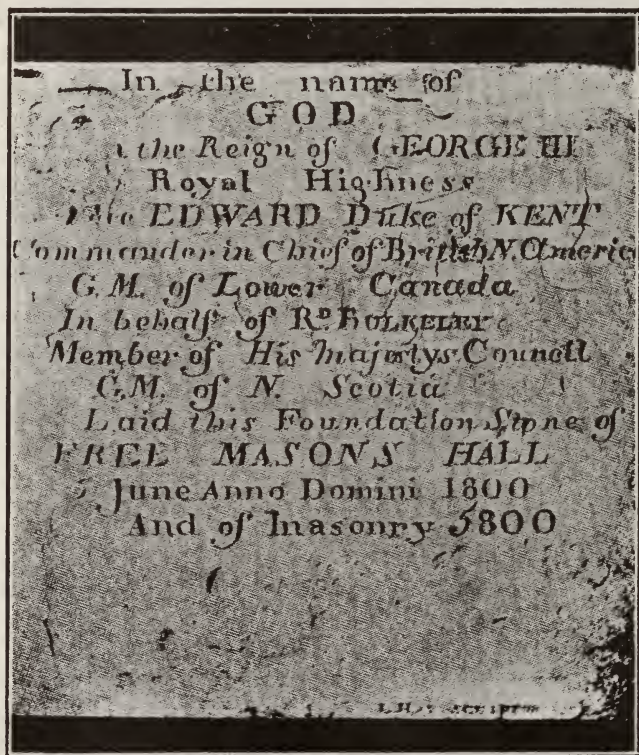 In the name of
GOD
the Reign of GEORGE III
Royal Highness
EDWARD Duke of KENT
Commander in Chief of British N. America
G.M. of Lower Canada
In behalf of R.D BULKELEY
Member of His Majestys Council
G.M. of N. Scotia
Laid this Foundation Stone of
FREE MASONS HALL
June Anno Domini 1800
And of Masonry 5800